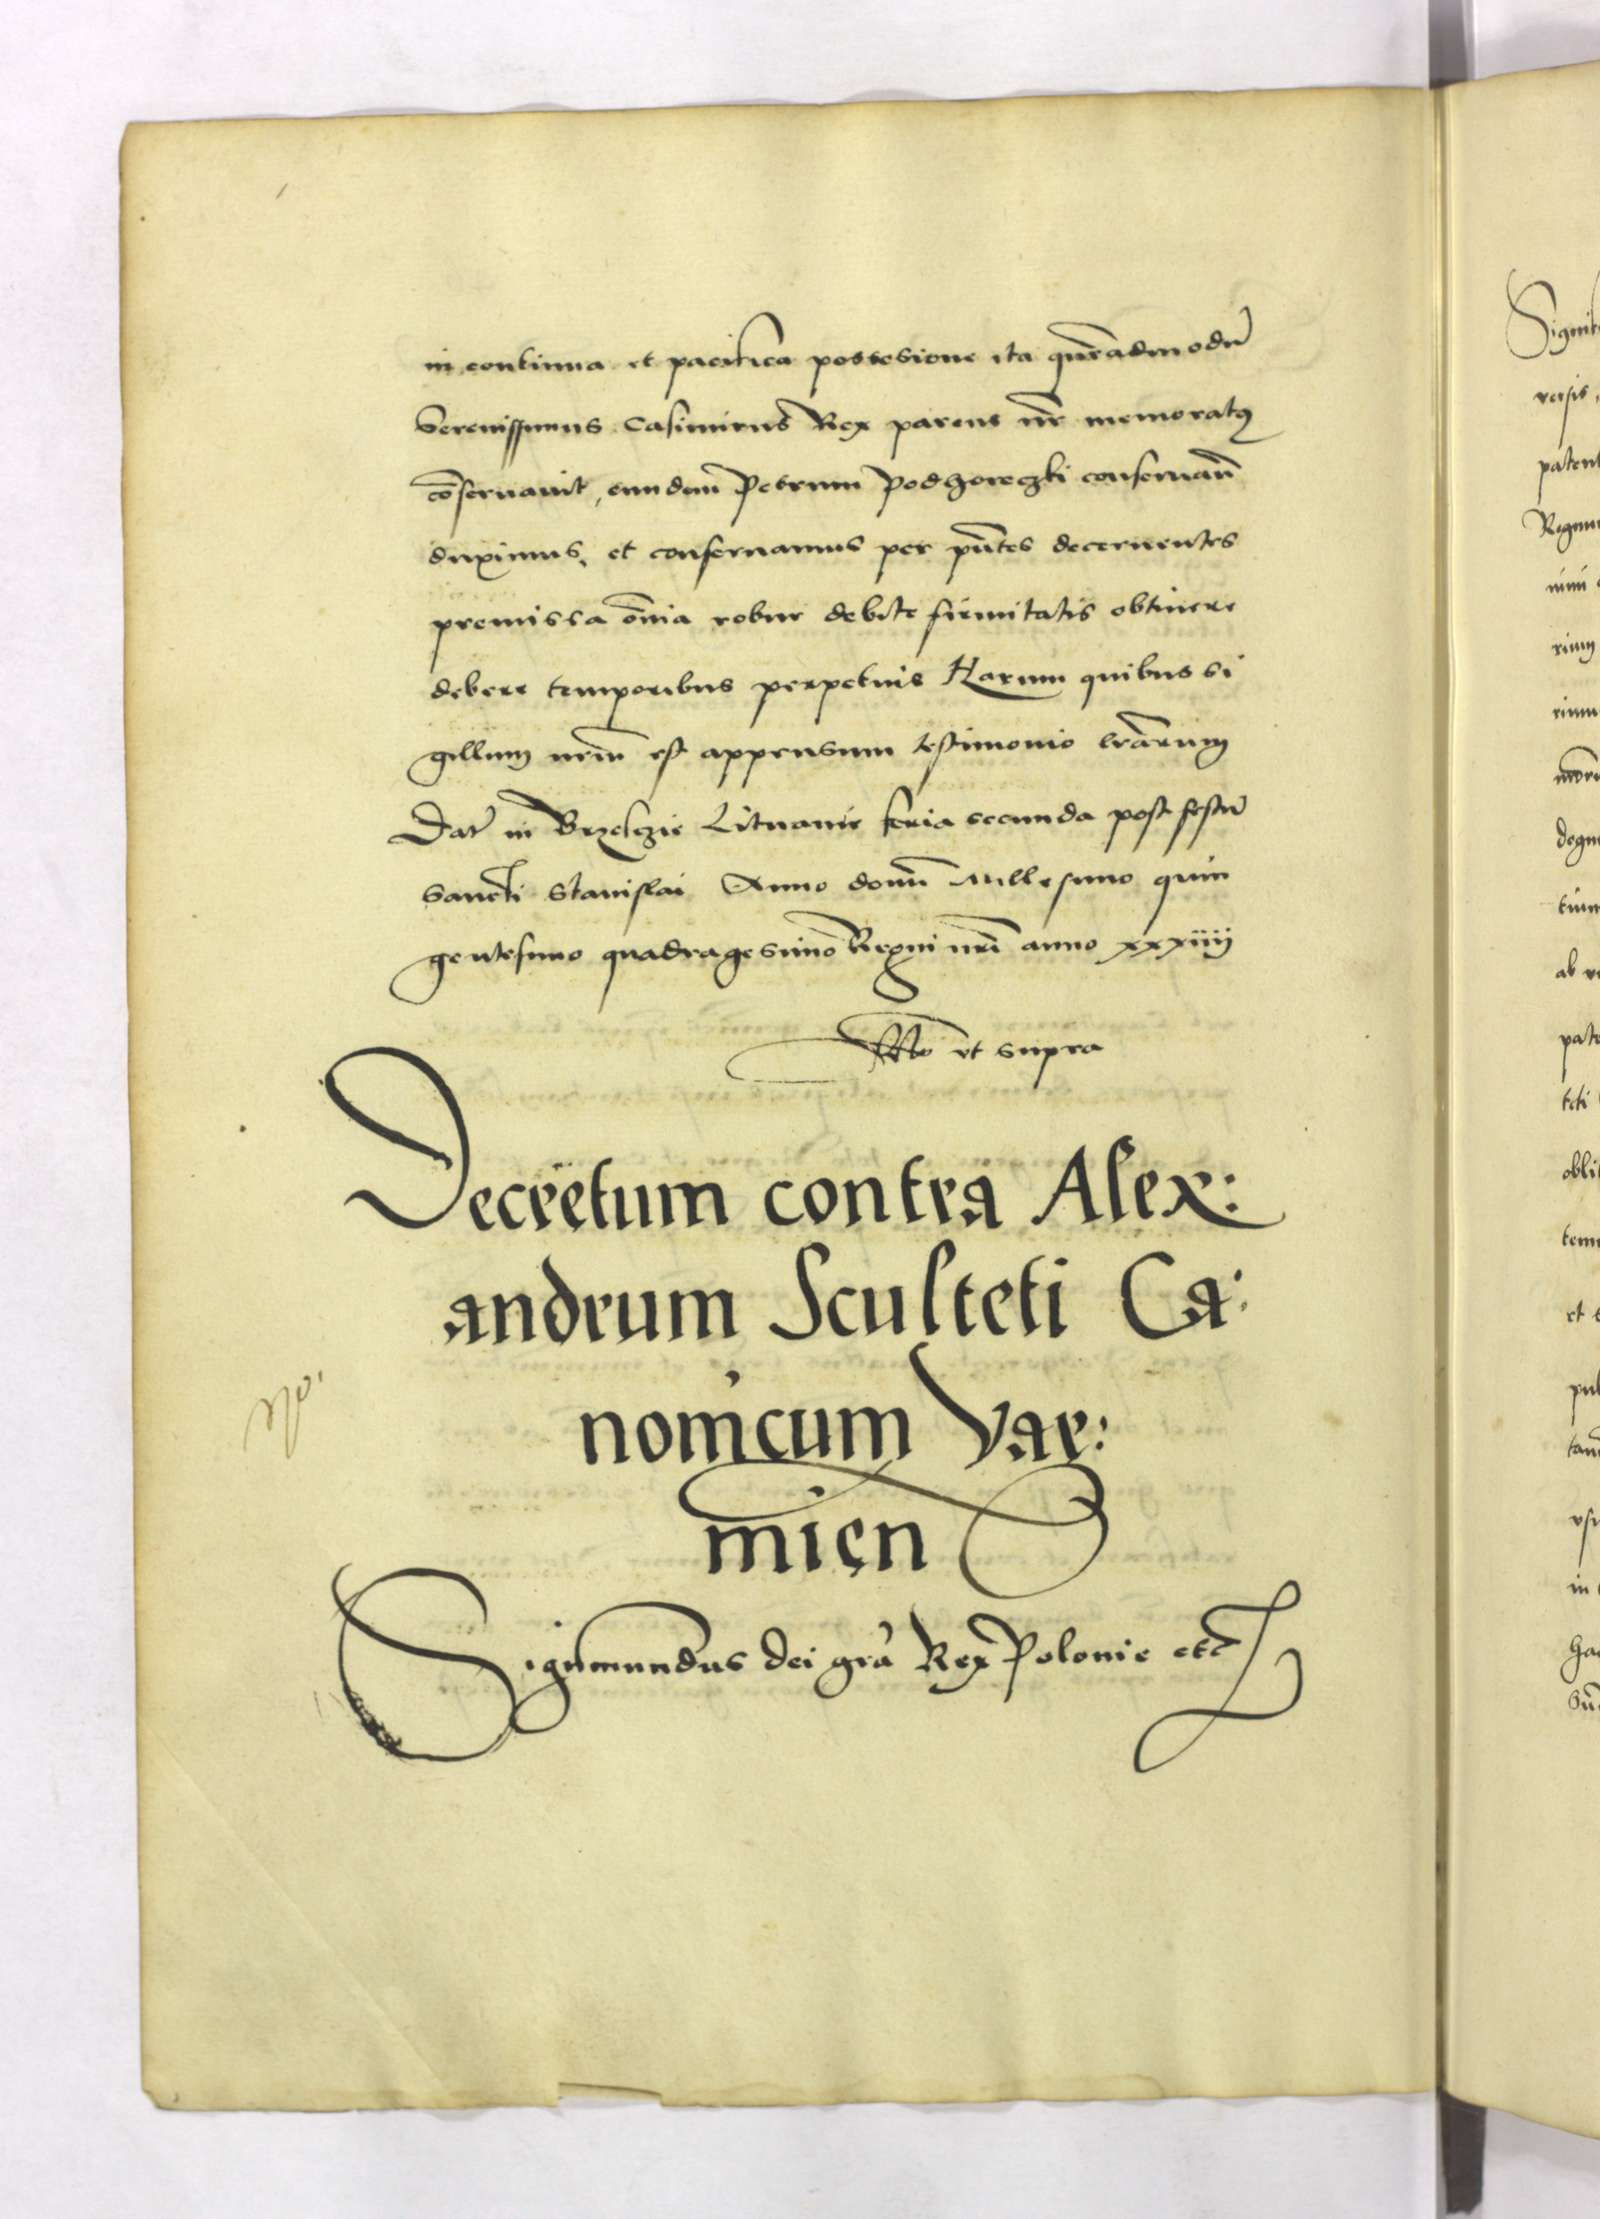 in continua et pacifica possesione ita quēadmodū
Serenissimus Casimirus Rex parens nr̄ memoratꝰ
cōservavit, eundem Petrum Podhoreczki conservan̄
duximus, et conservamus per pn̄tes decernentes
premissa om̄ia robur debite firmitatis obtinere
debere temporibus perpetuis Harum quibus si
gillum nrm̄ est appensum testimonio lr̄arum
Dat̄ in Brzesczie Lituanie feria secunda post festū
Sancti Stanislai Anno domī Millesimo quin
gentesimo quadragesimo Regni nrī anno xxxiiij
Rlto ut supra
Decretum contra Alex:
andrum Sculteti Ca:
nonicum Var:
mien
Sigismundus dei gra Rex Polonie etc